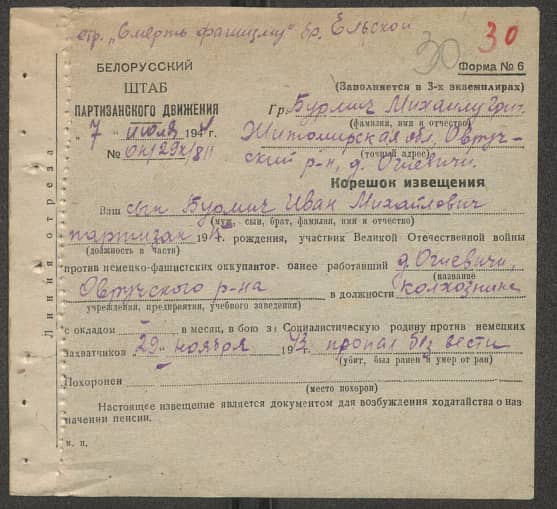 отр. „Смерть фашизму" бр. Ельской
30 30
БЕЛОРУССКИЙ
ШТАБ
ПАРТИЗАНСКОГО ДВИЖЕНИЯ
„7" июля 194 г.
№
Форма № 6
(Заполняется в 3-х экземплярах)
Гр. Бурмич Михаилу Григ.
(фамилия, имя и отчество)
Житомирская обл, Овруч-
(точный адрес)
ский р-н, д. Огиевичи.
Корешок извещения
Ваш сын Бурмич Иван Михайлович
(муж, сын, брат, фамилия, имя и отчество)
партизан 19 г. рождения, участник Великой Отечественной войны
(должность в части)
против немецко-фашистских оккупантов, ранее работавший д. Огиевичи,
(название
Овручского р-на в должности колхозника
учреждения, предприятия, учебного заведения)
с окладом — в месяц, в бою за Социалистическую родину против немецких
захватчиков „29" ноября 1943 пропал без вести
(убит, был ранен и умер от ран)
Похоронен —
(место похорон)
Настоящее извещение является документом для возбуждения ходатайства о наз-
начении пенсии.
м. п.
Линия отреза